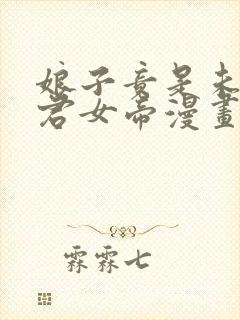 娘子竟是未
君女帝漫畫
霖霖七